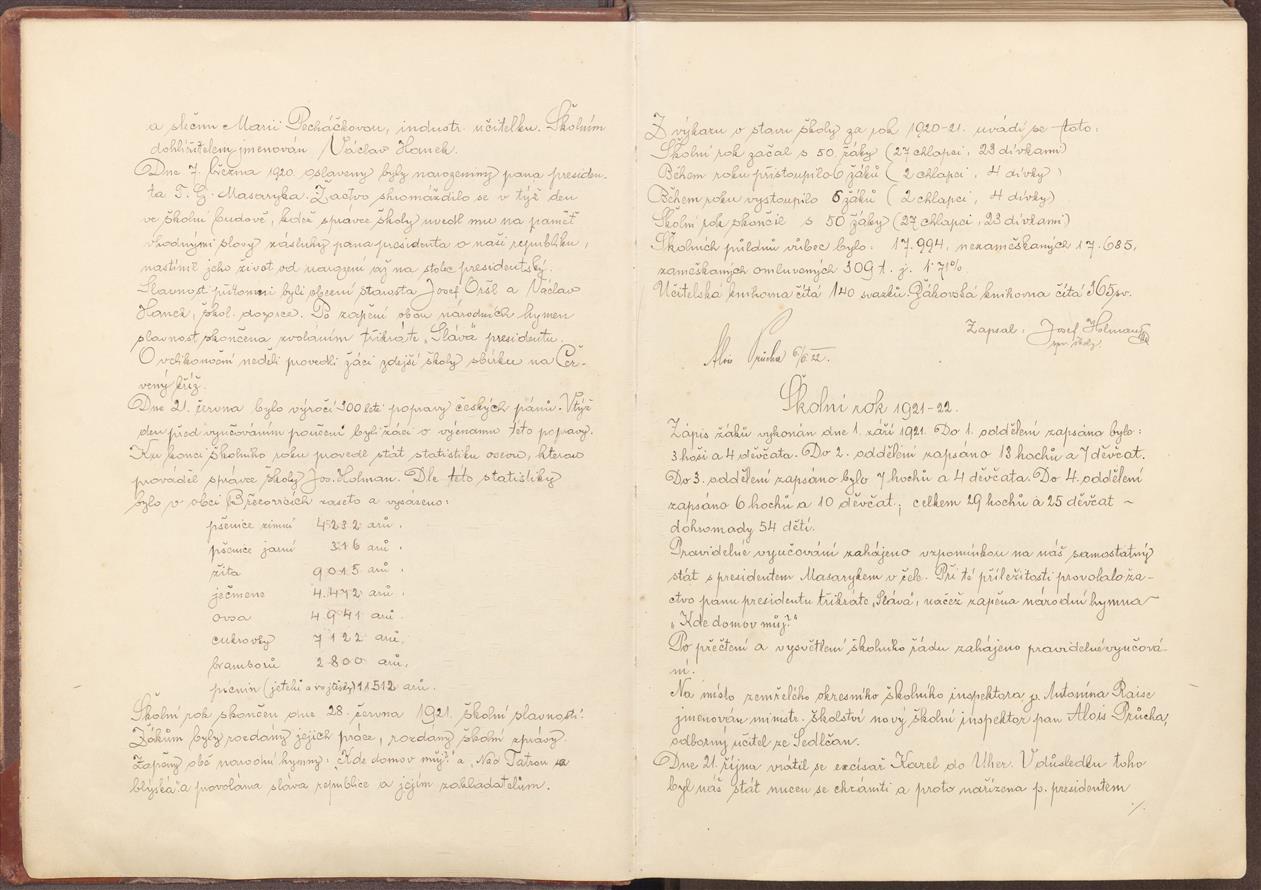 a slečnu Marii Pecháčkovou, industr. učitelku. Školním
dohlížitelem jmenován Václav Hanek.
Dne 7. března 1920 oslaveny byly narozeniny pana presiden-
ta T. G. Masaryka. Žactvo shromáždilo se v týž den
ve školní budově, kdež správce školy uvedl mu na paměť
vhodnými slovy zásluhy pana presidenta o naši republiku,
nastínil jeho život od narození až na stolec presidentský.
Slavnosti přítomni byli obecní starosta Josef Oršl a Václav
Hanek, škol. dozorce. Po zapění obou národních hymen
slavnost skončena zvoláním třikráte „Sláva“ presidentu.
O velikonoční neděli provedli žáci zdejší školy sbírku na Čer-
vený kříž.
Dne 21. června bylo výročí 300 leté popravy českých pánů. V týž
den před vyučováním poučeni byli žáci o významu této popravy.
Ku konci školního roku provedl stát statistiku osevu, kterou
prováděl správce školy Jos. Holman. Dle této statistiky
bylo v obci Břekovcích zaseto a vysázeno:
pšenice zimní 4232 arů.
pšenice jarní 316 arů.
žita 9015 arů.
ječmene 4.472 arů.
ovsa 4941 arů.
cukrovky 7122 arů.
bramborů 2800 arů.
pícnin (jetelů a vojtěšky) 11512 arů.
Školní rok skončen dne 28. června 1921. školní slavností:
Žákům byly rozdány jejich práce, rozdány školní zprávy.
Zapěny obě národní hymny: „Kde domov můj?“ a „Nad Tatrou sa
blýská“ a provolána sláva republice a jejím zakladatelům.
Z výkazu o stavu školy za rok 1920-21. uvádí se toto:
Školní rok začal s 50 žáky (27 chlapci, 23 dívkami)
Během roku přistoupilo 6 žáků (2 chlapci, 4 dívky)
Během roku vystoupilo 6 žáků (2 chlapci, 4 dívky)
Školní rok skončil s 50 žáky (27 chlapci, 23 dívkami)
Školních půldnů vůbec bylo: 17.994, nezameškaných 17.685,
zameškaných omluvených 309 t. j. 1·71%
Učitelská knihovna čítá 140 svazků. Žákovská knihovna čítá 365 sv.
Zapsal: Josef Holman
spr. školy.
Alois Průcha 6/6 22.
Školní rok 1921-22.
Zápis žáků vykonán dne 1. září 1921. Do 1. oddělení zapsáno bylo:
3 hoši a 4 děvčata. Do 2. oddělení zapsáno 13 hochů a 7 děvčat.
Do 3. oddělení zapsáno bylo 7 hochů a 4 děvčata. Do 4. oddělení
zapsáno 6 hochů a 10 děvčat; celkem 29 hochů a 25 děvčat ~
dohromady 54 dětí.
Pravidelné vyučování zahájeno vzpomínkou na náš samostatný
stát s presidentem Masarykem v čele. Při té příležitosti provolalo žá-
ctvo panu presidentu třikráte „Sláva“, načež zapěna národní hymna
„Kde domov můj?“
Po přečtení a vysvětlení školního řádu zahájeno pravidelné vyučová-
ní.
Na místo zemřelého okresního školního inspektora p. Antonína Raise
jmenován ministr. školství nový školní inspektor pan Alois Průcha,
odborný učitel ze Sedlčan.
Dne 21. října vrátil se excísař Karel do Uher. V důsledku toho
byl náš stát nucen se chrániti a proto nařízena p. presidentem
./.